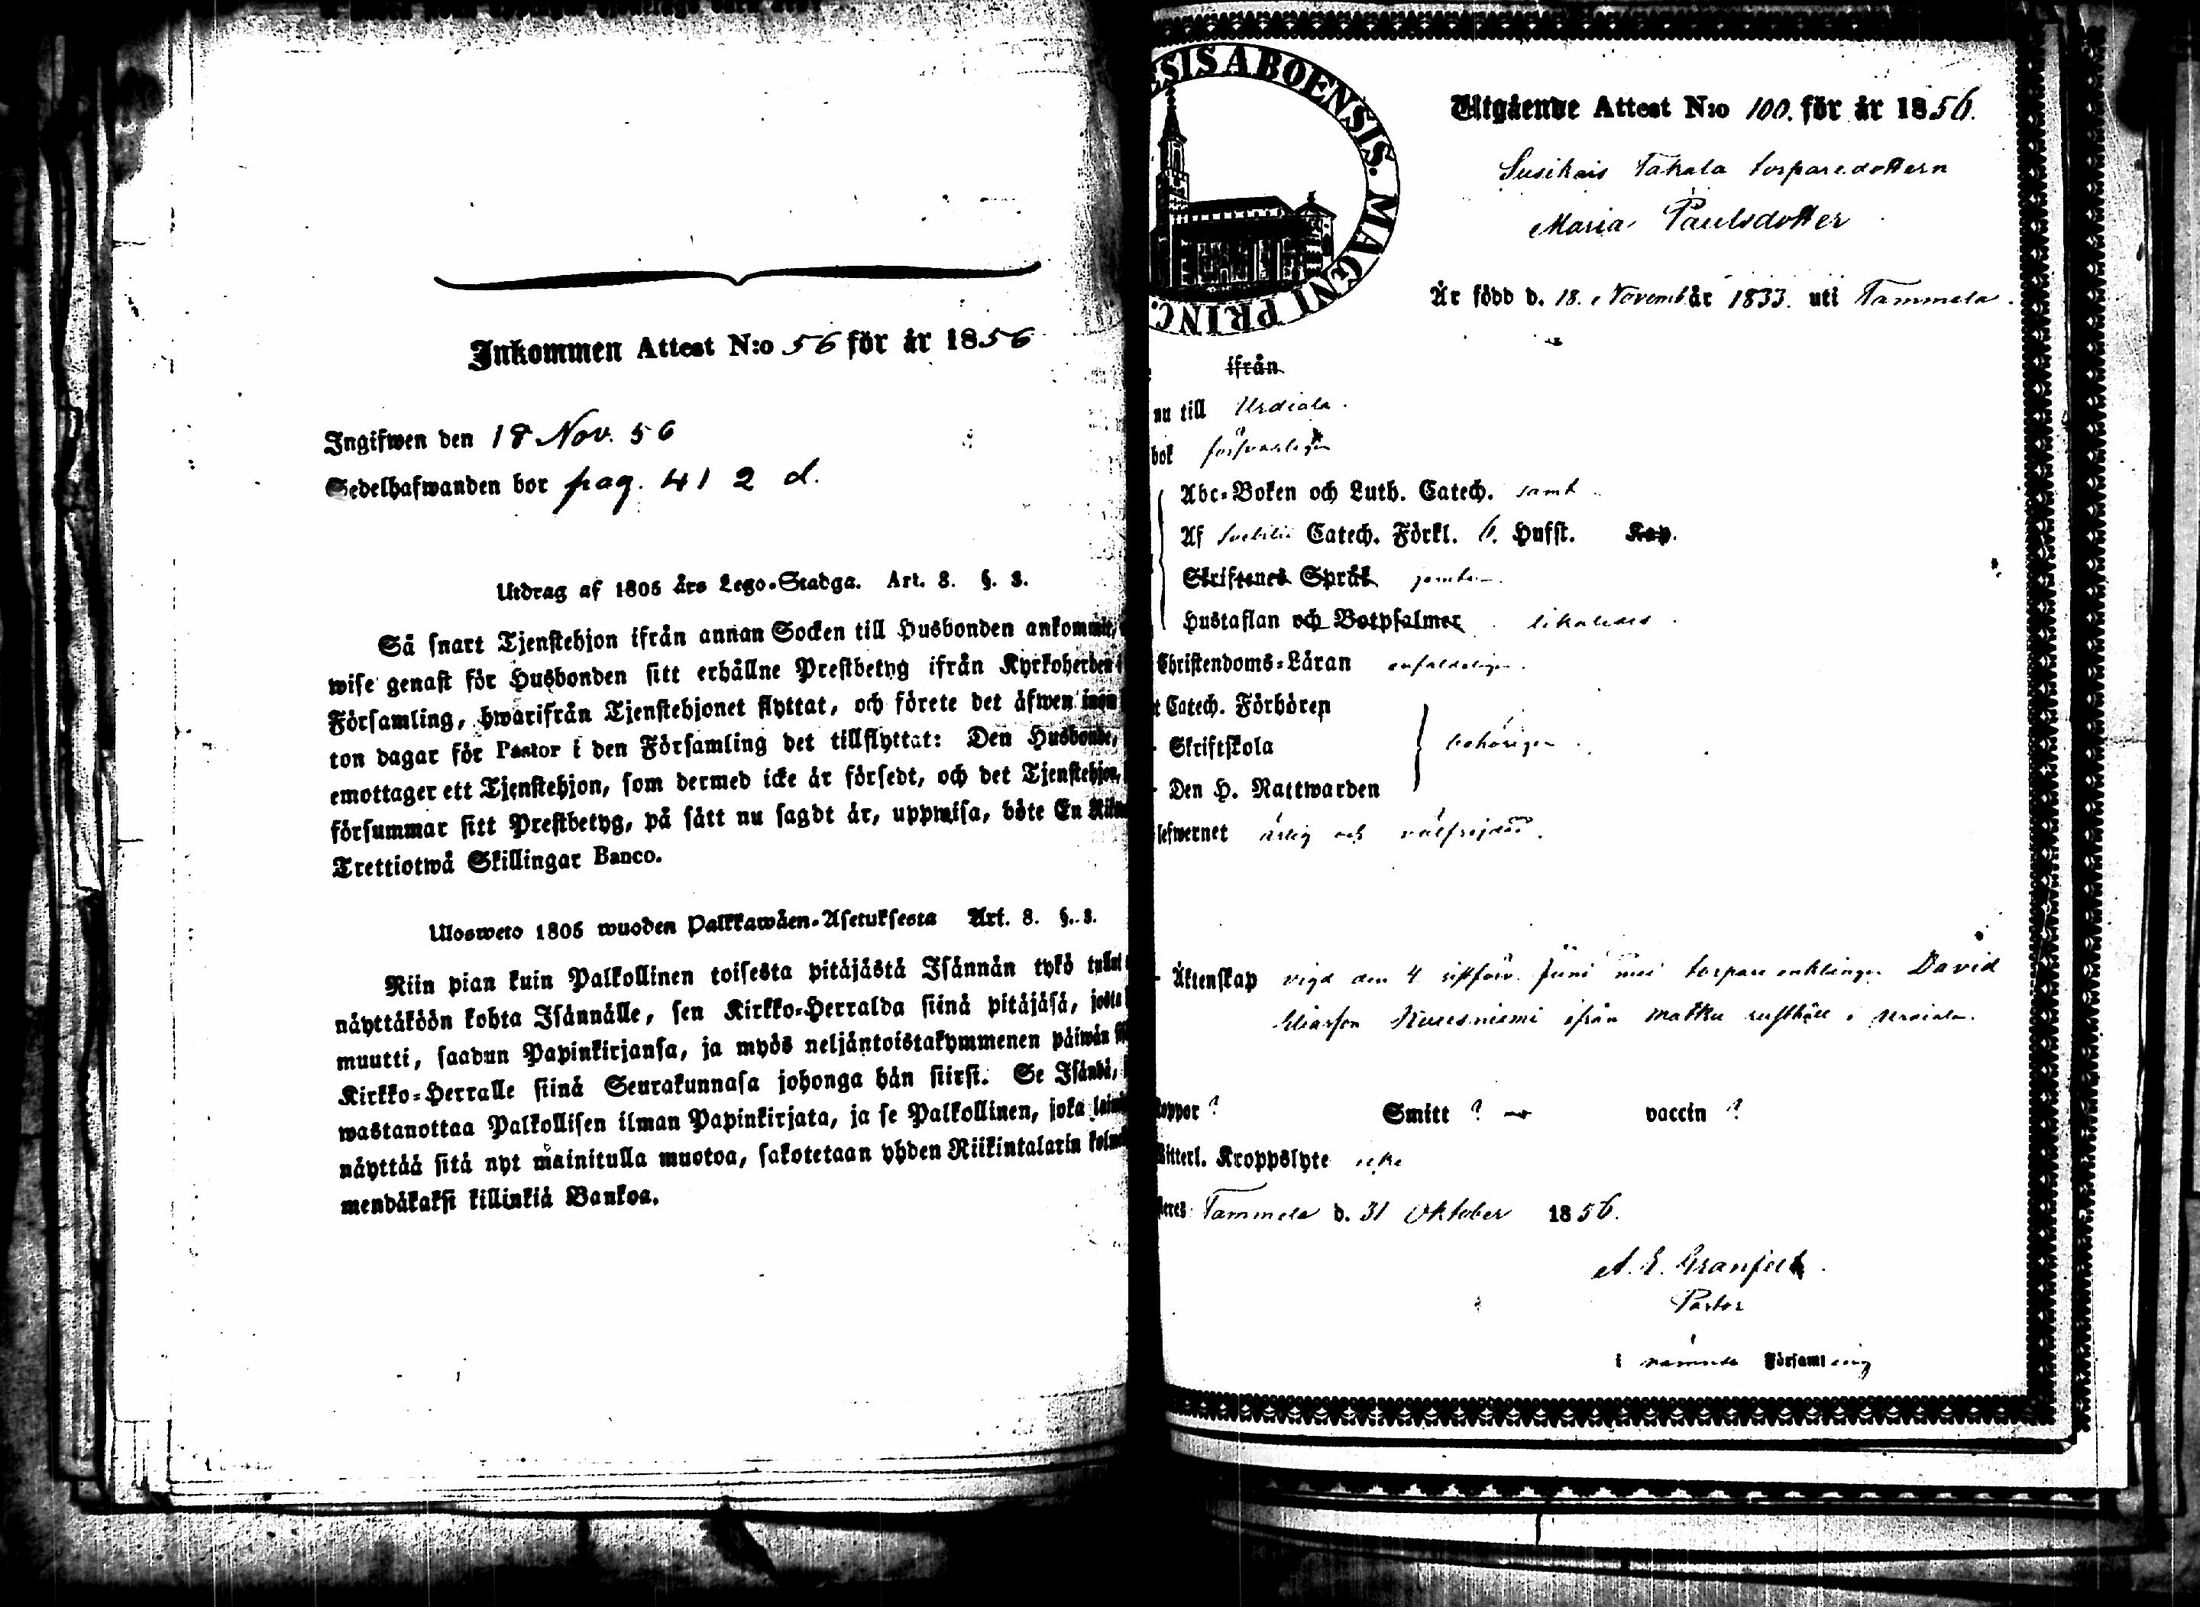 Inkommen Attest N:o 56 för år 1856
Ingifwen den 18 Nov. 56
Sedelhafwanden bor pag. 412 d.
Utdrag af 1805 års Lego-Stadga. Art. 8. §. 3.
Så snart Tjenstehjon ifrån annan Socken till Husbonden ankommit,
wise genast för Husbonden sitt erhållne Prestbetyg ifrån Kyrkoherden
Församling, hwarifrån Tjenstehjonet flyttat, och förete det äfwen inom
ton dagar för Pastor i den Församling det tillflyttat: Den Husbonde,
emottager ett Tjenstehjon, som dermed icke är försedt, och det Tjenstehjon,
försummar sitt Prestbetyg, på sätt nu sagdt är, uppwisa, böte En Riks
Trettiotwå Skillingar Banco.
Ulosweto 1805 wuoden Palkkawäen-Asetuksesta Art. 8. §. 3.
Niin pian kuin Palkollinen toisesta pitäjästä Isännän tykö tullut
näyttäköön kohta Isännälle, sen Kirkko-Herralda siinä pitäjäsä, josta
muutti, saadun Papinkirjansa, ja myös neljäntoistakymmenen päiwän
Kirkko-Herralle siinä Seurakunnasa johonga hän siirsi. Se Isändä,
wastanottaa Palkollisen ilman Papinkirjata, ja se Palkollinen, joka
näyttää sitä nyt mainitulla muotoa, sakotetaan yhden Riikintalarin
mendäkaksi killinkiä Bankoa.
SIS ABOENSIS. MAGNI PRINC.
Utgående Attest N:o 100. för år 1856.
Susikais Takala torparedottern
Maria Paulsdotter
Är född d. 18. Novemb år 1833. uti Tammela.
ifrån
nu till Urdiala.
bok försvarligen
Abc-Boken och Luth. Catech. samt
Af Svebilii Catech. Förkl. 6. Hufst. Kap.
Skriftenes Språk jemte
Hustaflan och Botpsalmer likaledes.
Christendoms-Läran enfaldeligen.
Catech. Förhören
Skriftskola behörigen.
Den H. Nattwarden
lefwernet ärlig och välfrejdad.
Äktenskap vigd den 4 sistförv. Juni med torpare enklingen David
Eliasson Kuusniemi ifrån Matku rusthåll i Urdiala.
koppor ? Smitt ? vaccin ?
Witterl. Kroppslyte icke
Tammela d. 31 Oktober 1856.
A. E. Granfelt.
Pastor
i nämnde Församling